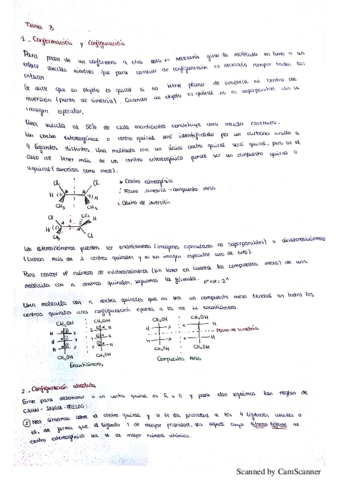 Tema 3
1. Conformación y configuración
Para pasar de un confórmero a otro solo es necesario girar la molécula en torno a un
enlace sencillo mientras que para cambiar de configuración es necesario romper todos los
enlaces
Se dice que un objeto es quiral si no tiene plano de simetría ni centro de
inversión (punto de simetría). Cuando un objeto es quiral no es superponible con su
imagen especular.
Una mezcla al 50% de cada enantiómero constituye una mezcla racémica.
Un centro estereogénico o centro quiral será identificado por un carbono unido a
4 ligandos distintos. Una molécula con un único centro quiral será quiral, pero en el
caso de tener más de un centro estereogénico puede ser un compuesto quiral o
aquiral (conocido como meso).
Cl Cl
H H
CH₃ CH₃
* Centro estereogénico
Plano simetría → compuesto meso
Centro de inversión
Los estereoisómeros pueden ser enantiómeros (imágenes especulares no superponibles) o diastereoisómeros
(tienen más de 2 centros quirales y no son imagen especular uno de otro).
Para conocer el número de estereoisómeros (sin tener en cuenta los compuestos meso) de una
molécula con n centros quirales, seguimos la fórmula: nº est = 2ⁿ
Una molécula con n centros quirales que no sea un compuesto meso tendrá en todos los
centros quirales una configuración opuesta a la de su enantiómero
CH₂OH CH₂OH CH₂OH
Plano de simetría
CH₂OH CH₂OH CH₂OH
Enantiómeros Compuesto meso
2. Configuración absoluta
Sirve para determinar si un centro quiral es R o S y para ello seguimos las reglas de
CAHN-INGOLD-PRELOG:
① Nos situamos sobre el centro quiral y se da prioridad a los 4 ligandos unidos a
él, de forma que el ligando 1 de mayor prioridad, es aquel cuyo átomo unido al
centro estereogénico sea el de mayor número atómico.
Scanned by CamScanner